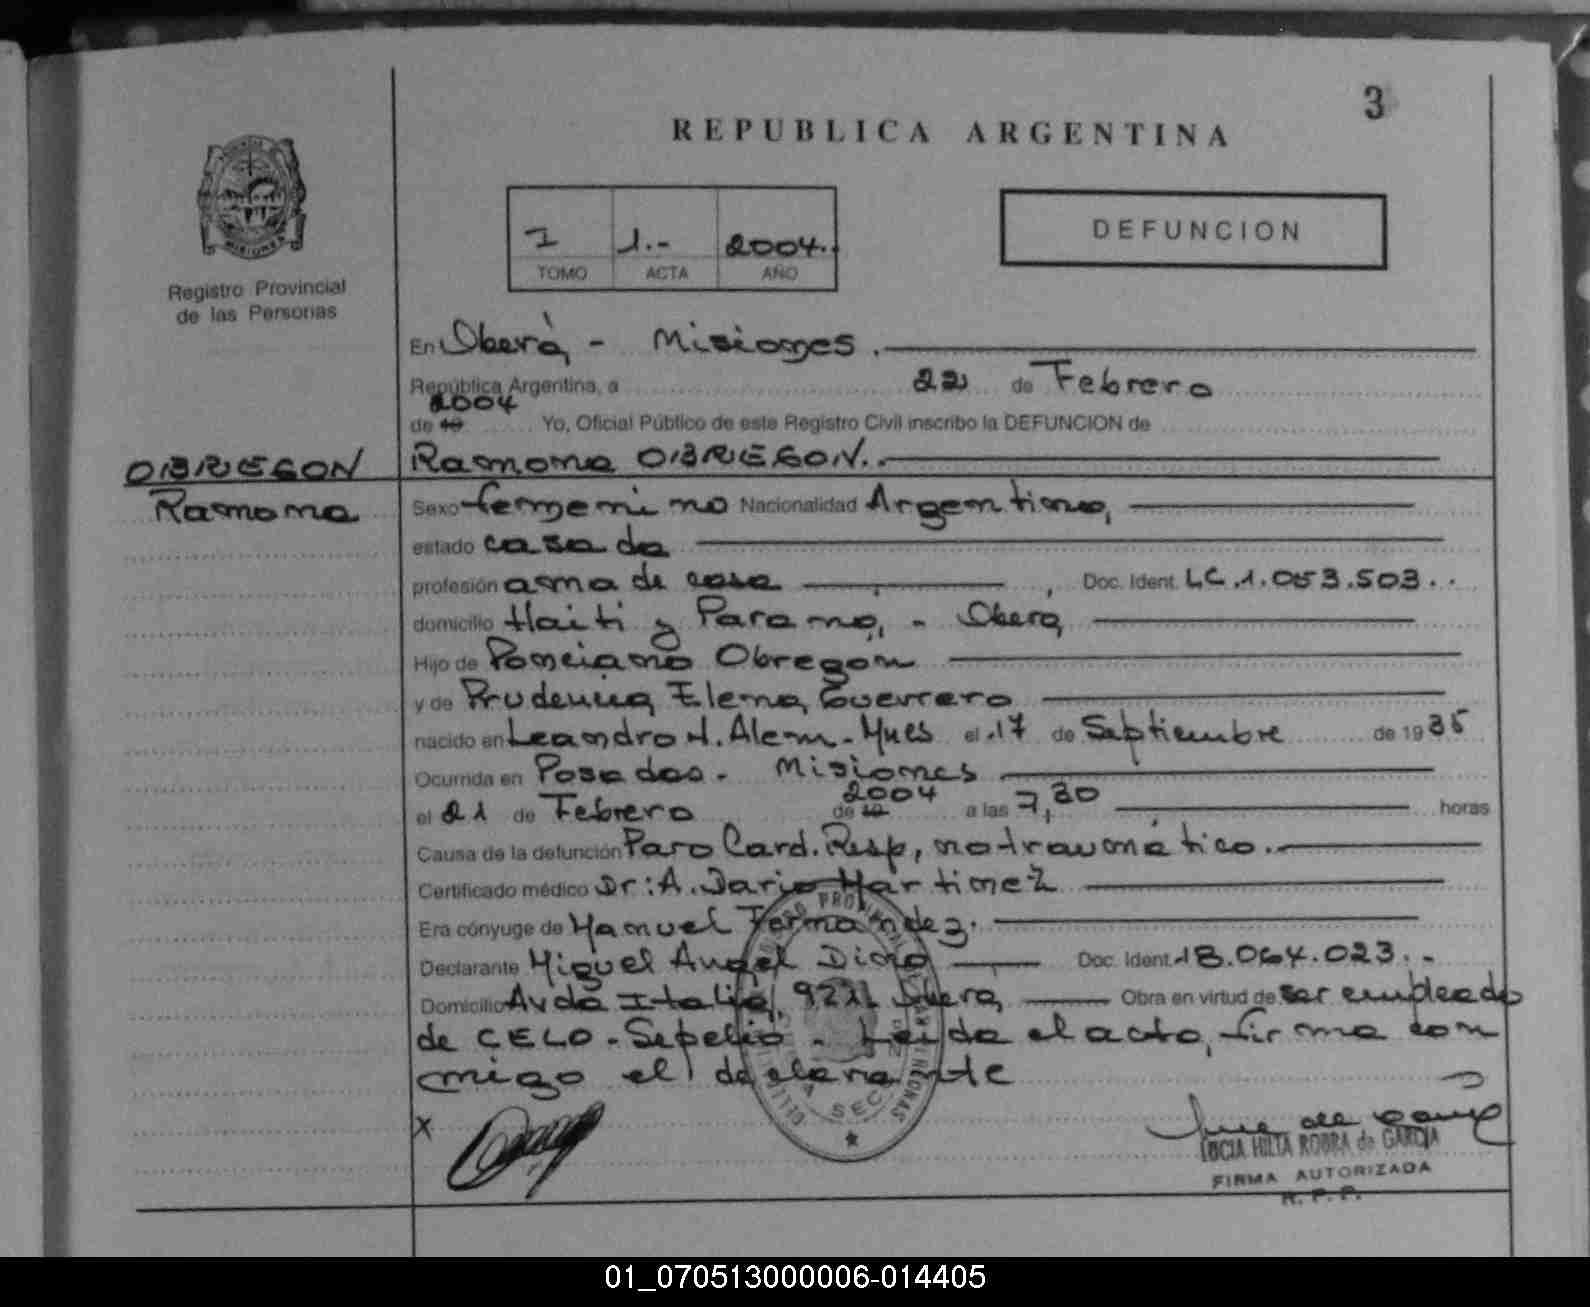 3
REPUBLICA ARGENTINA
I 1.- 2004.
TOMO ACTA AÑO
DEFUNCION
MISIONES
Registro Provincial
de las Personas
En Oberá - Misiones.
República Argentina, a 22 de Febrero
2004
de 19 Yo, Oficial Público de este Registro Civil inscribo la DEFUNCION de
OBREGON
Ramona
Ramona OBREGON.
Sexo femenino Nacionalidad Argentina,
estado casada
profesión ama de casa, Doc. Ident. LC.1.053.503..
domicilio Haiti y Parana, - Obera
Hijo de Ponciano Obregon
y de Prudencia Elena Guerrero
nacido en Leandro N. Alem - Mnes el 17 de Septiembre de 1935
Ocurrida en Posadas - Misiones
2004
el 21 de Febrero de 19 a las 7,30 horas
Causa de la defunción Paro Card. Resp, no traumático.
Certificado médico Dr: A. Dario Martinez
Era cónyuge de Manuel Fernandez.
Declarante Miguel Angel Doc. Ident. 18.064.023.-
Domicilio Avda Italia, Obera, Obra en virtud de ser empleado
de CELO - Sepelio - Leida el acta, firma con
migo el declarante
X
LUCIA HILTA ROBRA de GARCIA
FIRMA AUTORIZADA
R. P. P.
01_070513000006-014405